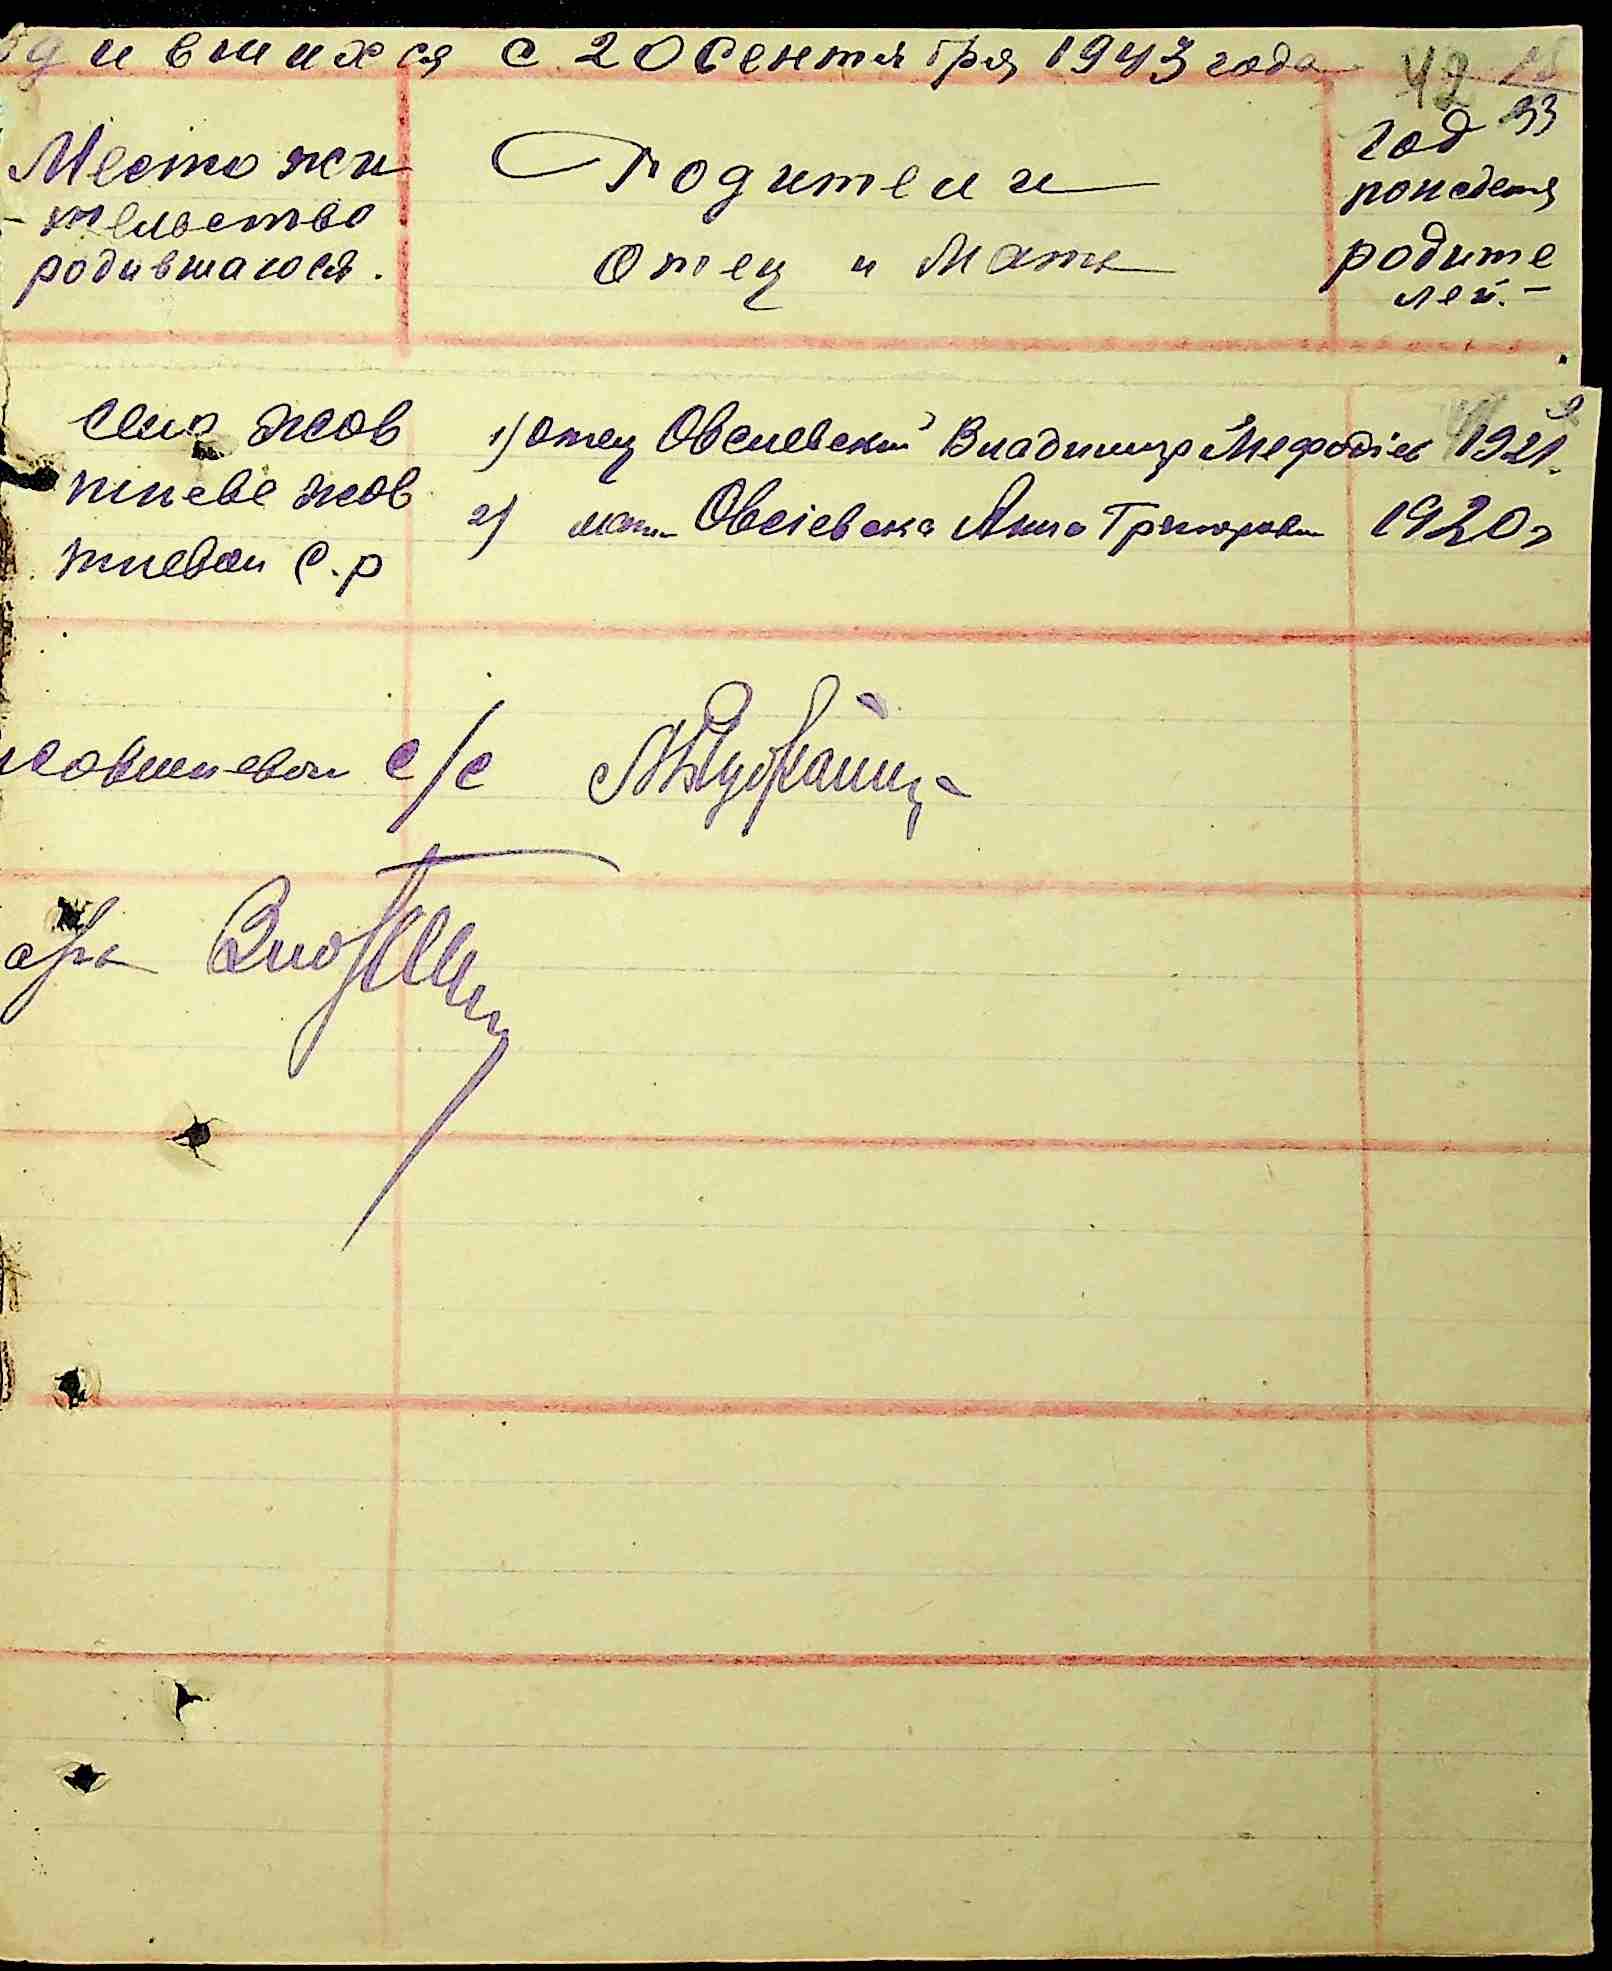 одившихся с 20 Сентября 1943 года 42
33
Место жи
тельство
родившагося.
Родители
Отец и Мать
год
рождетя
родите
лей.-
село Жов
тневе Жов
тневой С.р
1) отец Овсиевский Владимир Мефодіев 1921.
2) мать Овсіевска Анна Григоровн 1920г
Жовтневой с/с